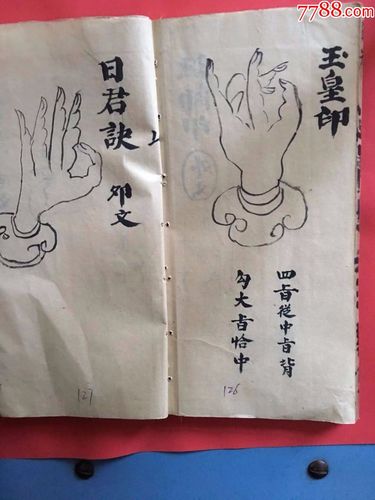 7788.com
玉皇印
四旨從中旨背
勾大旨恰中
126
日君訣
夘文
127